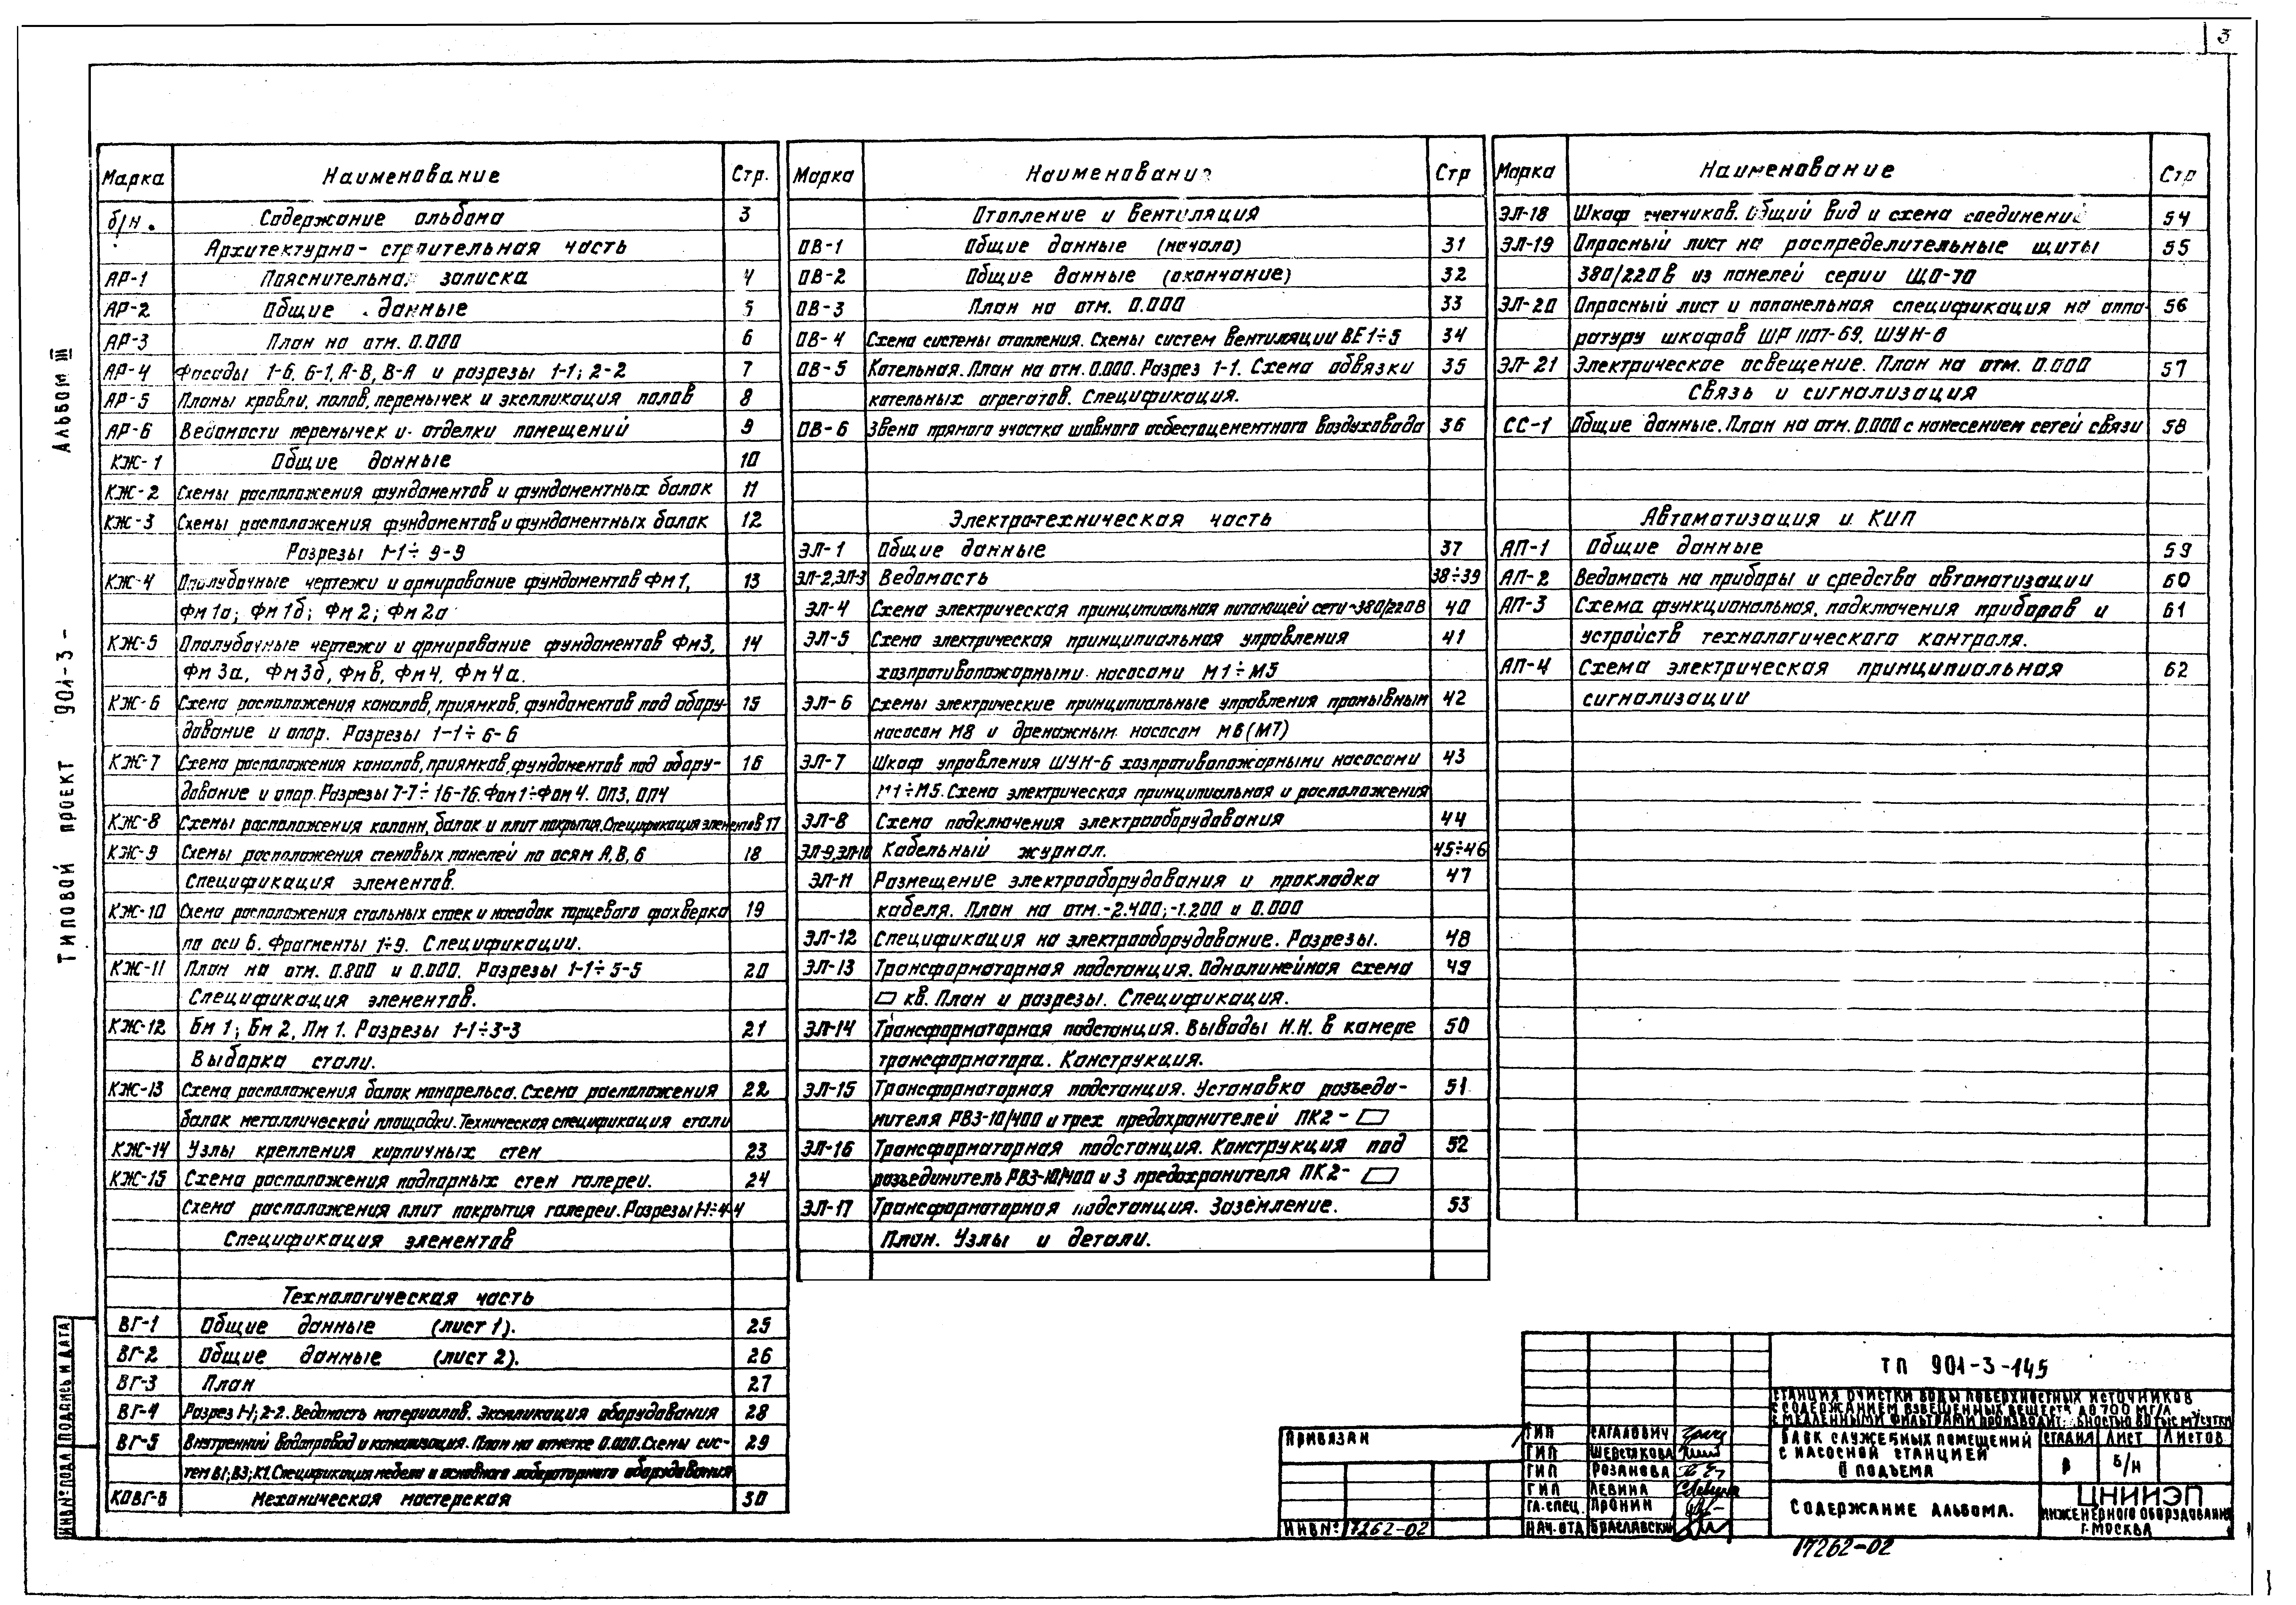 3
Альбом III
Типовой проект 901-3-
Марка Наименование Стр.
б/н. Содержание альбома 3
Архитектурно-строительная часть
АР-1 Пояснительная записка 4
АР-2 Общие данные 5
АР-3 План на отм. 0.000 6
АР-4 Фасады 1-6, 6-1, А-В, В-А и разрезы 1-1; 2-2 7
АР-5 Планы кровли, полов, перемычек и экспликация полов 8
АР-6 Ведомости перемычек и отделки помещений 9
КЖ-1 Общие данные 10
КЖ-2 Схемы расположения фундаментов и фундаментных балок 11
КЖ-3 Схемы расположения фундаментов и фундаментных балок 12
Разрезы 1-1÷9-9
КЖ-4 Опалубочные чертежи и армирование фундаментов Фм1, 13
Фм1а; Фм1б; Фм2; Фм2а
КЖ-5 Опалубочные чертежи и армирование фундаментов Фм3, 14
Фм3а, Фм3б, Фмв, Фм4, Фм4а.
КЖ-6 Схема расположения каналов, приямков, фундаментов под обору- 15
дование и опор. Разрезы 1-1÷6-6
КЖ-7 Схема расположения каналов, приямков, фундаментов под обору- 16
дование и опор. Разрезы 7-7÷16-16. Фом1÷Фом4. ОП3, ОП4
КЖ-8 Схемы расположения колонн, балок и плит покрытия. Спецификация элементов 17
КЖ-9 Схемы расположения стеновых панелей по осям А, В, 6 18
Спецификация элементов.
КЖ-10 Схема расположения стальных стоек и насадок торцевого фахверка 19
по оси 6. Фрагменты 1÷9. Спецификации.
КЖ-11 План на отм. 0.800 и 0.000. Разрезы 1-1÷5-5 20
Спецификация элементов.
КЖ-12 Бм1; Бм2, Пм1. Разрезы 1-1÷3-3 21
Выборка стали.
КЖ-13 Схема расположения балок монорельса. Схема расположения 22
балок металлической площадки. Техническая спецификация стали
КЖ-14 Узлы крепления кирпичных стен 23
КЖ-15 Схема расположения подпорных стен галереи. 24
Схема расположения плит покрытия галереи. Разрезы 1-1÷4-4
Спецификация элементов
Технологическая часть
ВГ-1 Общие данные (лист 1). 25
ВГ-2 Общие данные (лист 2). 26
ВГ-3 План 27
ВГ-4 Разрез 1-1; 2-2. Ведомость материалов. Экспликация оборудования 28
ВГ-5 Внутренний водопровод и канализация. План на отметке 0.000. Схемы сис- 29
тем В1; В3; К1. Спецификация мебели и основного лабораторного оборудования
КОВГ-6 Механическая мастерская 30
Марка Наименование Стр
Отопление и вентиляция
ОВ-1 Общие данные (начало) 31
ОВ-2 Общие данные (окончание) 32
ОВ-3 План на отм. 0.000 33
ОВ-4 Схема системы отопления. Схемы систем вентиляции ВЕ1÷5 34
ОВ-5 Котельная. План на отм. 0.000. Разрез 1-1. Схема обвязки 35
котельных агрегатов. Спецификация.
ОВ-6 Звено прямого участка шовного асбестоцементного воздуховода 36
Электротехническая часть
ЭЛ-1 Общие данные 37
ЭЛ-2, ЭЛ-3 Ведомость 38÷39
ЭЛ-4 Схема электрическая принципиальная питающей сети ~380/220В 40
ЭЛ-5 Схема электрическая принципиальная управления 41
хозпротивопожарными насосами М1÷М5
ЭЛ-6 Схемы электрические принципиальные управления промывным 42
насосом М8 и дренажным насосом М6(М7)
ЭЛ-7 Шкаф управления ШУН-6 хозпротивопожарными насосами 43
М1÷М5. Схема электрическая принципиальная и расположения
ЭЛ-8 Схема подключения электрооборудования 44
ЭЛ-9, ЭЛ-10 Кабельный журнал. 45÷46
ЭЛ-11 Размещение электрооборудования и прокладка 47
кабеля. План на отм. -2.400; -1.200 и 0.000
ЭЛ-12 Спецификация на электрооборудование. Разрезы. 48
ЭЛ-13 Трансформаторная подстанция. Однолинейная схема 49
▱ кв. План и разрезы. Спецификация.
ЭЛ-14 Трансформаторная подстанция. Выводы Н.Н. в камере 50
трансформатора. Конструкция.
ЭЛ-15 Трансформаторная подстанция. Установка разъеди- 51
нителя РВЗ-10/400 и трех предохранителей ПК2-▱
ЭЛ-16 Трансформаторная подстанция. Конструкция под 52
разъединитель РВЗ-10/400 и 3 предохранителя ПК2-▱
ЭЛ-17 Трансформаторная подстанция. Заземление. 53
План. Узлы и детали.
Марка Наименование Стр
ЭЛ-18 Шкаф счетчиков. Общий вид и схема соединений 54
ЭЛ-19 Опросный лист на распределительные щиты 55
380/220в из панелей серии ЩО-70
ЭЛ-20 Опросный лист и попанельная спецификация на аппа- 56
ратуру шкафов ШР 1107-69, ШУН-6
ЭЛ-21 Электрическое освещение. План на отм. 0.000 57
Связь и сигнализация
СС-1 Общие данные. План на отм. 0.000 с нанесением сетей связи 58
Автоматизация и КИП
АП-1 Общие данные 59
АП-2 Ведомость на приборы и средства автоматизации 60
АП-3 Схема функциональная, подключения приборов и 61
устройств технологического контроля.
АП-4 Схема электрическая принципиальная 62
сигнализации
ТП 901-3-145
Станция очистки воды поверхностных источников
с содержанием взвешенных веществ до 700 мг/л
с медленными фильтрами производит. 
Блок служебных помещений
с насосной станцией
II подъема
Стадия Лист Листов
Р б/н
Содержание альбома.
ЦНИИЭП
инженерного оборудования
г. Москва
Привязан
Инв № 17262-02
ГИП Сагалович
ГИП Шерстякова
ГИП Розанова
ГИП Левина
Гл. спец. Пронин
Нач. отд Браславский
17262-02
Инв № подл Подпись и дата